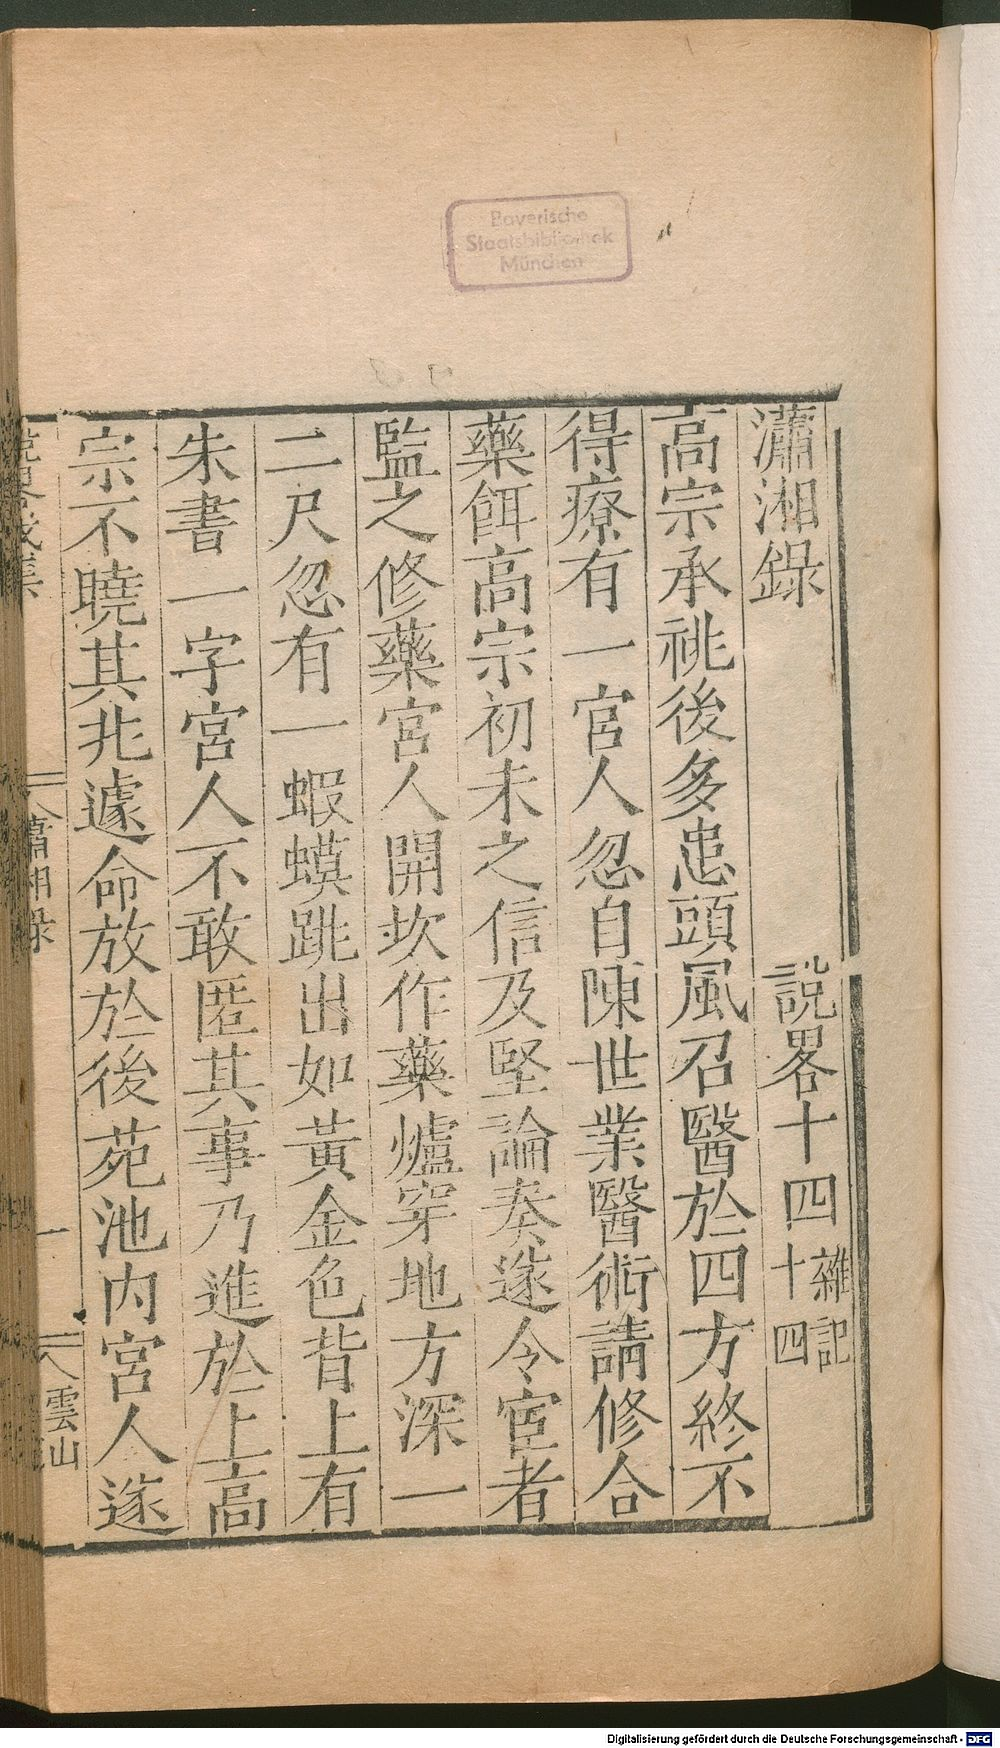 Bayerische
Staatsbibliothek
München
瀟湘錄 說畧十四 雜記十四
高宗承祧後多患頭風召醫於四方終不
得療有一宮人忽自陳世業醫術請修合
藥餌高宗初未之信及堅論奏遂令宦者
監之修藥宮人開坎作藥爐穿地方深一
二尺忽有一蝦蟆跳出如黃金色背上有
朱書一字宮人不敢匿其事乃進於上高
宗不曉其兆遽命放於後苑池內宮人遂
瀟湘錄 一 雲山
Digitalisierung gefördert durch die Deutsche Forschungsgemeinschaft - DFG